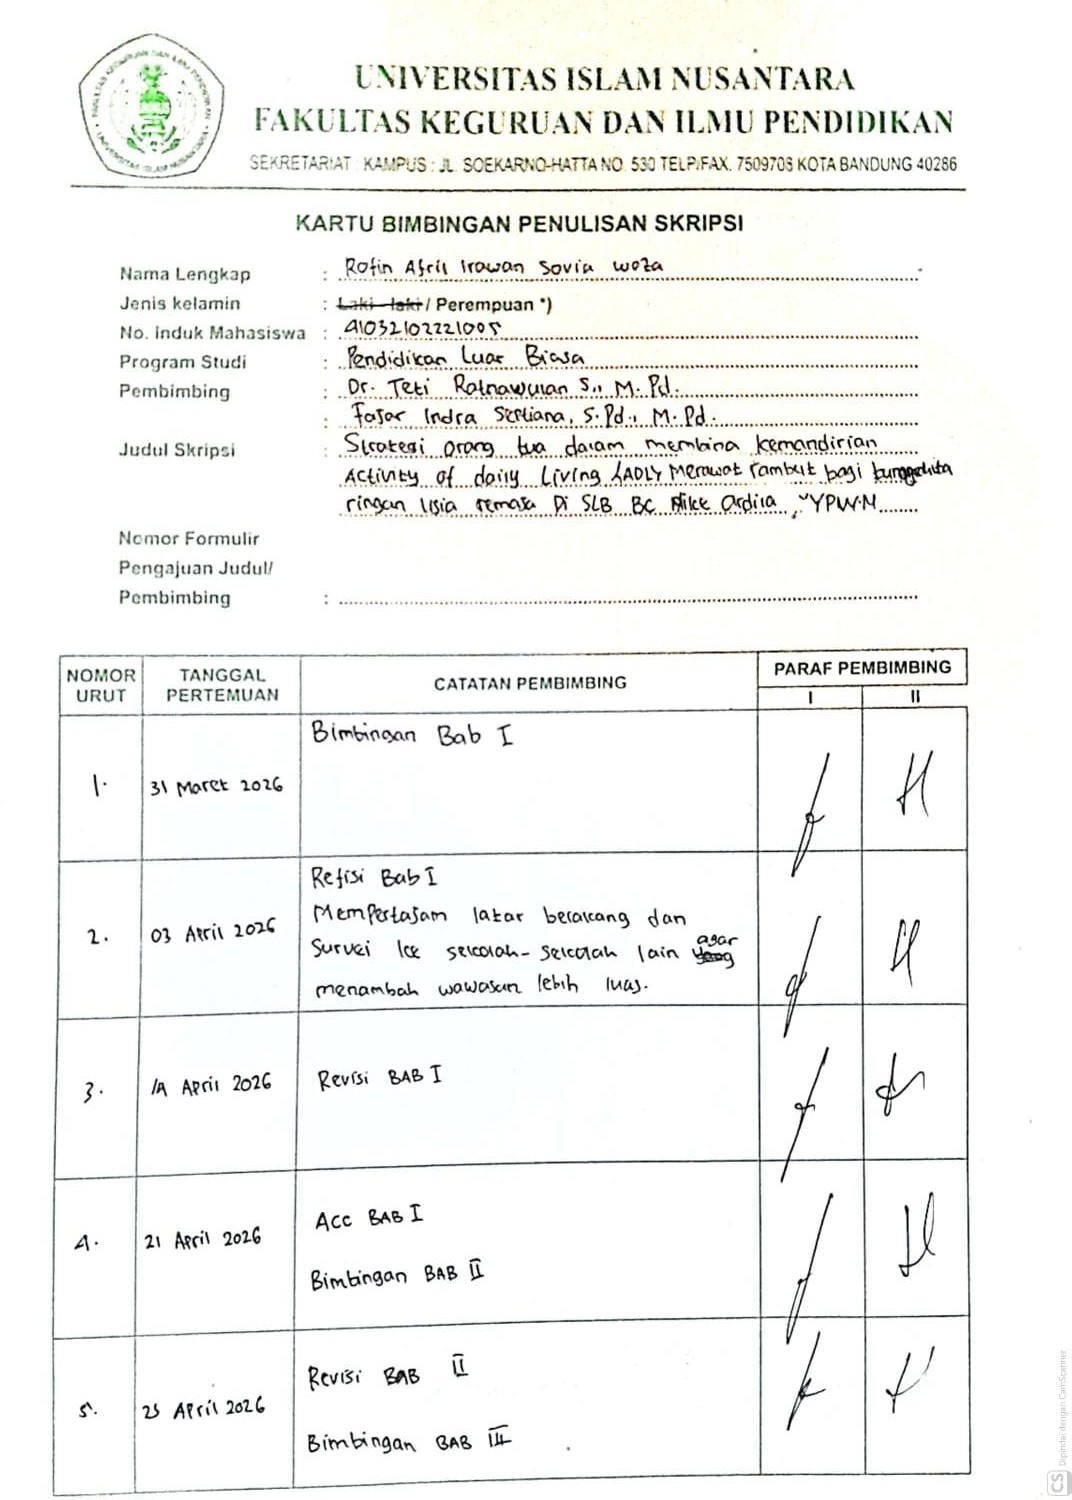 UNIVERSITAS ISLAM NUSANTARA
FAKULTAS KEGURUAN DAN ILMU PENDIDIKAN
SEKRETARIAT : KAMPUS : JL. SOEKARNO-HATTA NO. 530 TELP/FAX. 7509708 KOTA BANDUNG 40286
KARTU BIMBINGAN PENULISAN SKRIPSI
Nama Lengkap : Rofin Afril Irawan Sovia Woza
Jenis kelamin : Laki - laki / Perempuan *)
No. Induk Mahasiswa : 41032102221005
Program Studi : Pendidikan Luar Biasa
Pembimbing : Dr. Teti Ratnawulan S., M.Pd.
: Fajar Indra Septiana, S.Pd., M.Pd.
Judul Skripsi : Strategi orang tua dalam membina kemandirian
Activity of daily Living (ADL) Merawat rambut bagi tunagrahita
ringan Usia remaja Di SLB BC Nike Ardila, YPWN
Nomor Formulir
Pengajuan Judul/
Pembimbing :
NOMOR URUT TANGGAL PERTEMUAN CATATAN PEMBIMBING PARAF PEMBIMBING
I II
1. 31 Maret 2026 Bimbingan Bab I
2. 03 April 2026 Refisi Bab I
Mempertajam latar belakang dan
Survei ke sekolah-sekolah lain agar
menambah wawasan lebih luas.
3. 14 April 2026 Revisi BAB I
4. 21 April 2026 Acc BAB I
Bimbingan BAB II
5. 25 April 2026 Revisi BAB II
Bimbingan BAB III
CS Dipindai dengan CamScanner